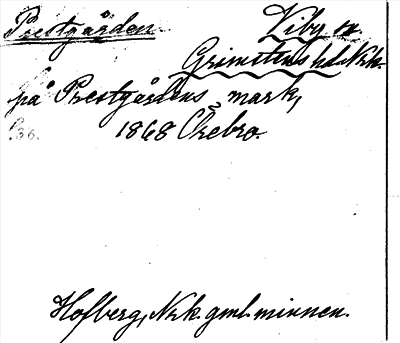 Prestgården. Viby sn.
Grimstens hd. Nrk.
på Prestgårdens mark,
1868 Örebro.
Hofberg, Nrk. gml. minnen.